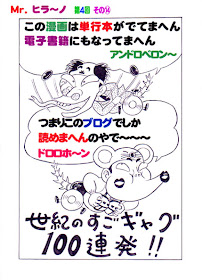 Mr. ヒラ～ノ 第4回 その⑭
この漫画は単行本がでてまへん
電子書籍にもなってまへん
アンドロペロン～
つまりこのブログでしか
読めまへんのやで～～～
ドロロホ～ン
世紀のすごギャグ
100連発!!